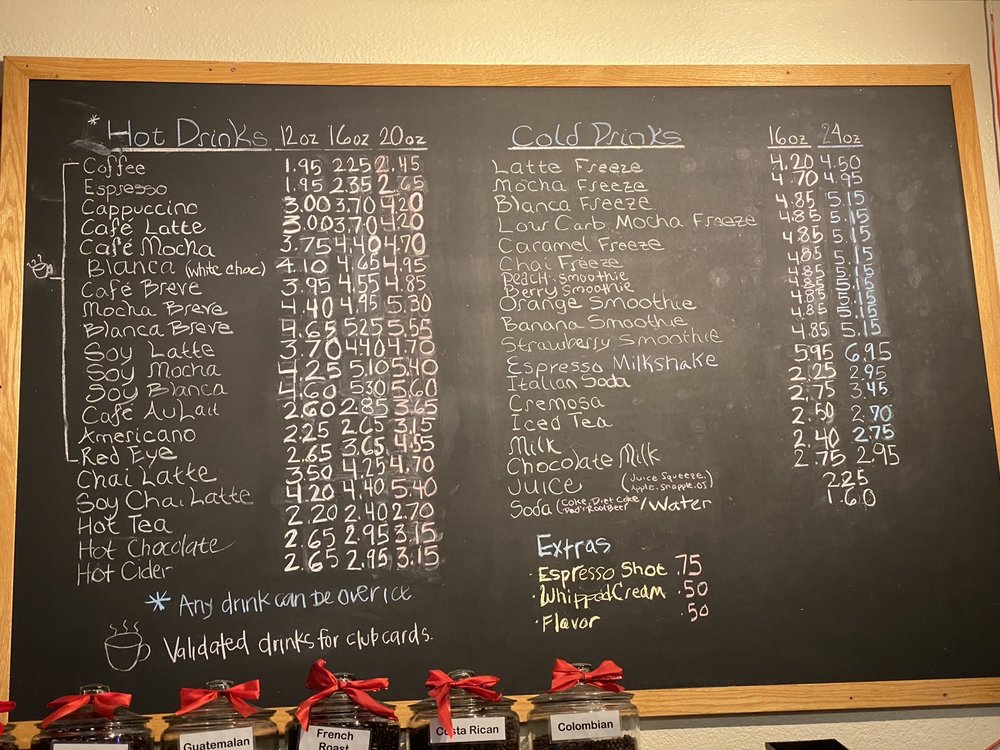 *Hot Drinks 12oz 16oz 20oz
Coffee 1.95 2.25 2.45
Espresso 1.95 2.35 2.65
Cappuccino 3.00 3.70 4.20
Café Latte 3.00 3.70 4.20
Café Mocha 3.75 4.40 4.70
Blanca (white choc) 4.10 4.65 4.95
Café Breve 3.95 4.55 4.85
Mocha Breve 4.40 4.95 5.30
Blanca Breve 4.65 5.25 5.55
Soy Latte 3.70 4.40 4.70
Soy Mocha 4.25 5.10 5.40
Soy Blanca 4.60 5.30 5.60
Café AuLait 2.60 2.85 3.65
Americano 2.25 2.65 3.15
Red Eye 2.65 3.65 4.55
Chai Latte 3.50 4.25 4.70
Soy Chai Latte 4.20 4.40 5.40
Hot Tea 2.20 2.40 2.70
Hot Chocolate 2.65 2.95 3.15
Hot Cider 2.65 2.95 3.15
* Any drink can be over ice
Validated drinks for club cards.
Cold Drinks 16oz 24oz
Latte Freeze 4.20 4.50
Mocha Freeze 4.70 4.95
Blanca Freeze 4.85 5.15
Low Carb Mocha Freeze 4.85 5.15
Caramel Freeze 4.85 5.15
Chai Freeze 4.85 5.15
Peach Smoothie 4.85 5.15
Berry Smoothie 4.85 5.15
Orange Smoothie 4.85 5.15
Banana Smoothie 4.85 5.15
Strawberry Smoothie 4.85 5.15
Espresso Milkshake 5.95 6.95
Italian Soda 2.25 2.95
Cremosa 2.75 3.45
Iced Tea 2.50 2.70
Milk 2.40 2.75
Chocolate Milk 2.75 2.95
Juice (Juice Squeeze Apple, Snapple, OJ) 2.25
Soda (Coke, Diet Coke Dad's Root Beer) /Water 1.60
Extras
· Espresso Shot .75
· Whipped Cream .50
· Flavor .50
Guatemalan
French
Roast
Costa Rican
Colombian